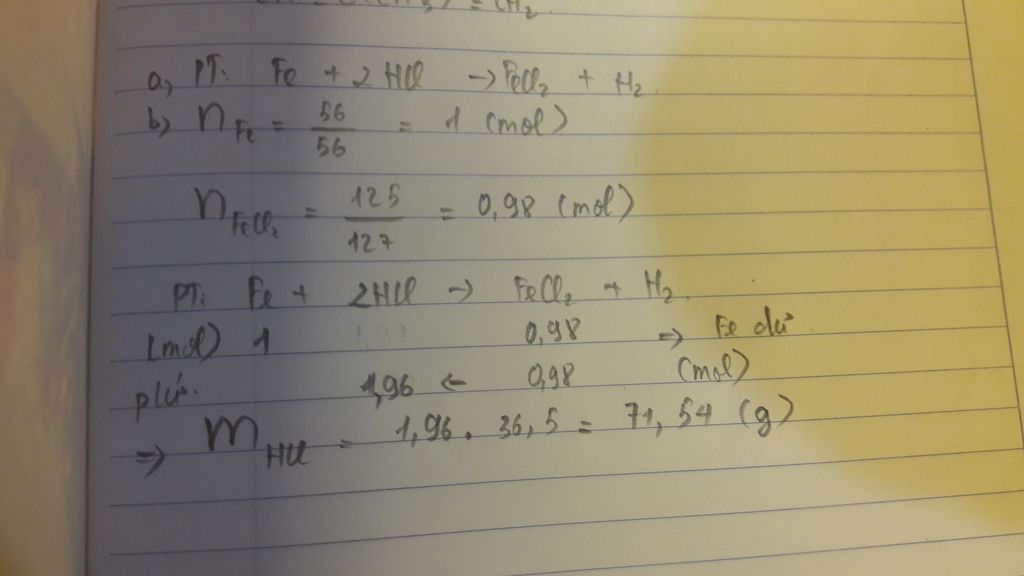 a, PT: Fe + 2HCl → FeCl₂ + H₂
b) nFe = 56/56 = 1 (mol)
nFeCl₂ = 125/127 = 0,98 (mol)
PT: Fe + 2HCl → FeCl₂ + H₂
(mol) 1 0,98 ⇒ Fe dư
1,96 ← 0,98 (mol)
⇒ mHCl = 1,96 . 36,5 = 71,54 (g)